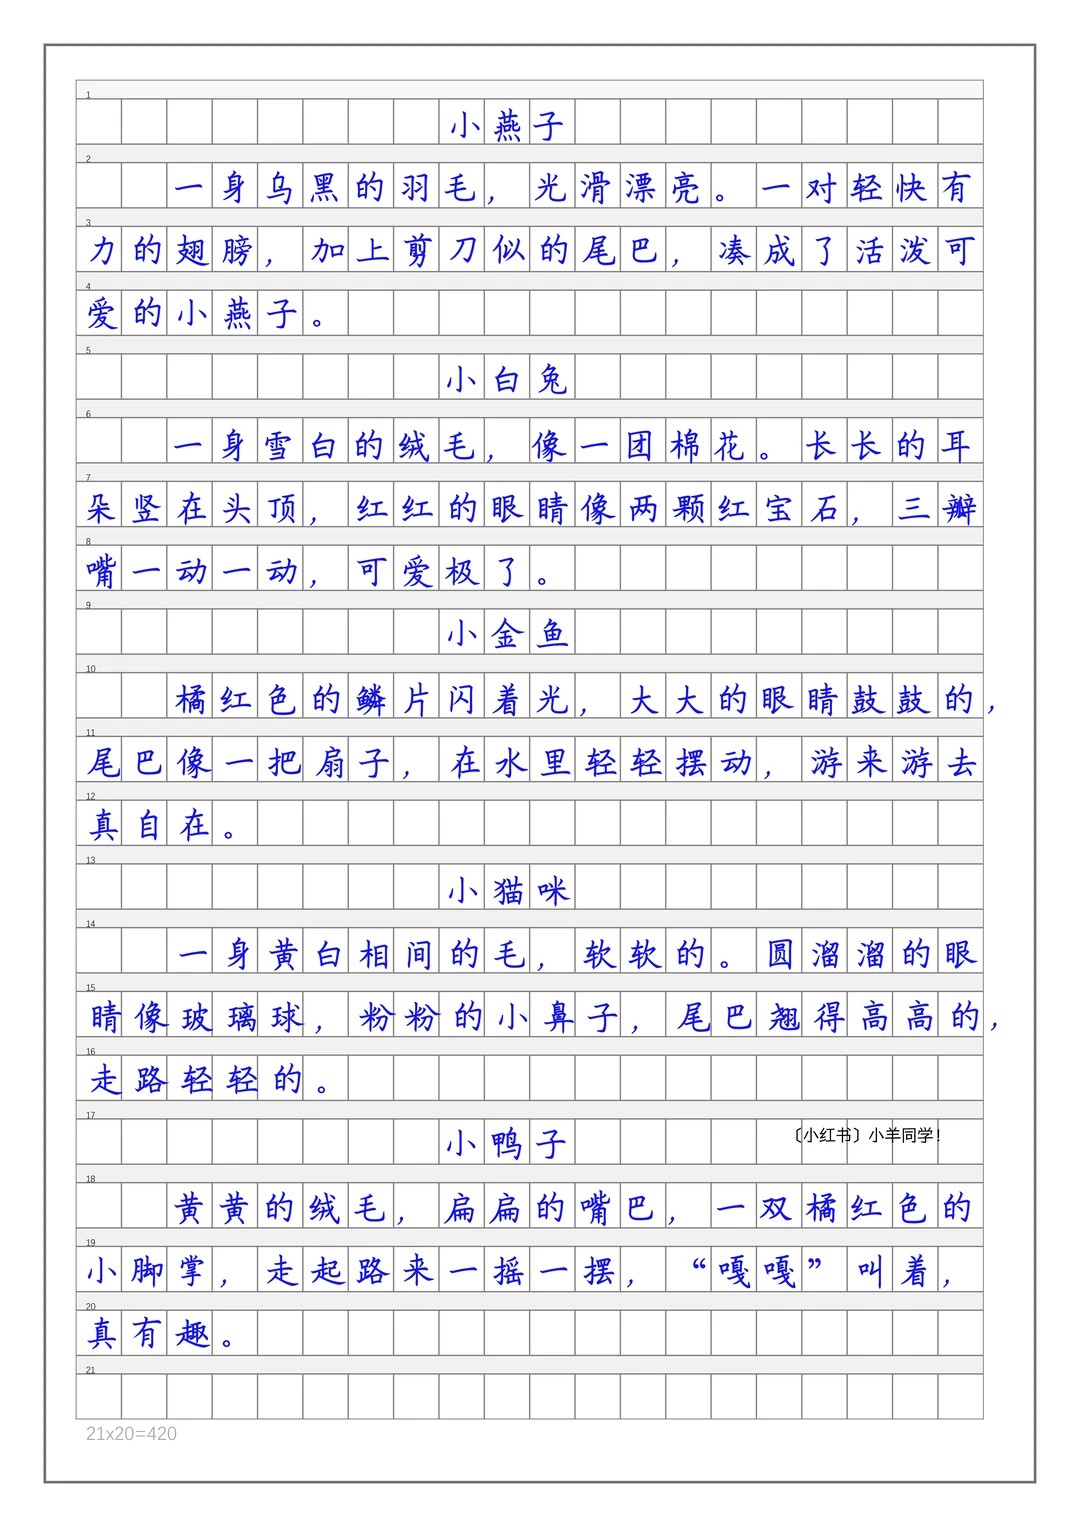 1
小燕子
2
一身乌黑的羽毛，光滑漂亮。一对轻快有
3
力的翅膀，加上剪刀似的尾巴，凑成了活泼可
4
爱的小燕子。
5
小白兔
6
一身雪白的绒毛，像一团棉花。长长的耳
7
朵竖在头顶，红红的眼睛像两颗红宝石，三瓣
8
嘴一动一动，可爱极了。
9
小金鱼
10
橘红色的鳞片闪着光，大大的眼睛鼓鼓的，
11
尾巴像一把扇子，在水里轻轻摆动，游来游去
12
真自在。
13
小猫咪
14
一身黄白相间的毛，软软的。圆溜溜的眼
15
睛像玻璃球，粉粉的小鼻子，尾巴翘得高高的，
16
走路轻轻的。
17
小鸭子
〔小红书〕小羊同学！
18
黄黄的绒毛，扁扁的嘴巴，一双橘红色的
19
小脚掌，走起路来一摇一摆，“嘎嘎”叫着，
20
真有趣。
21
21x20=420